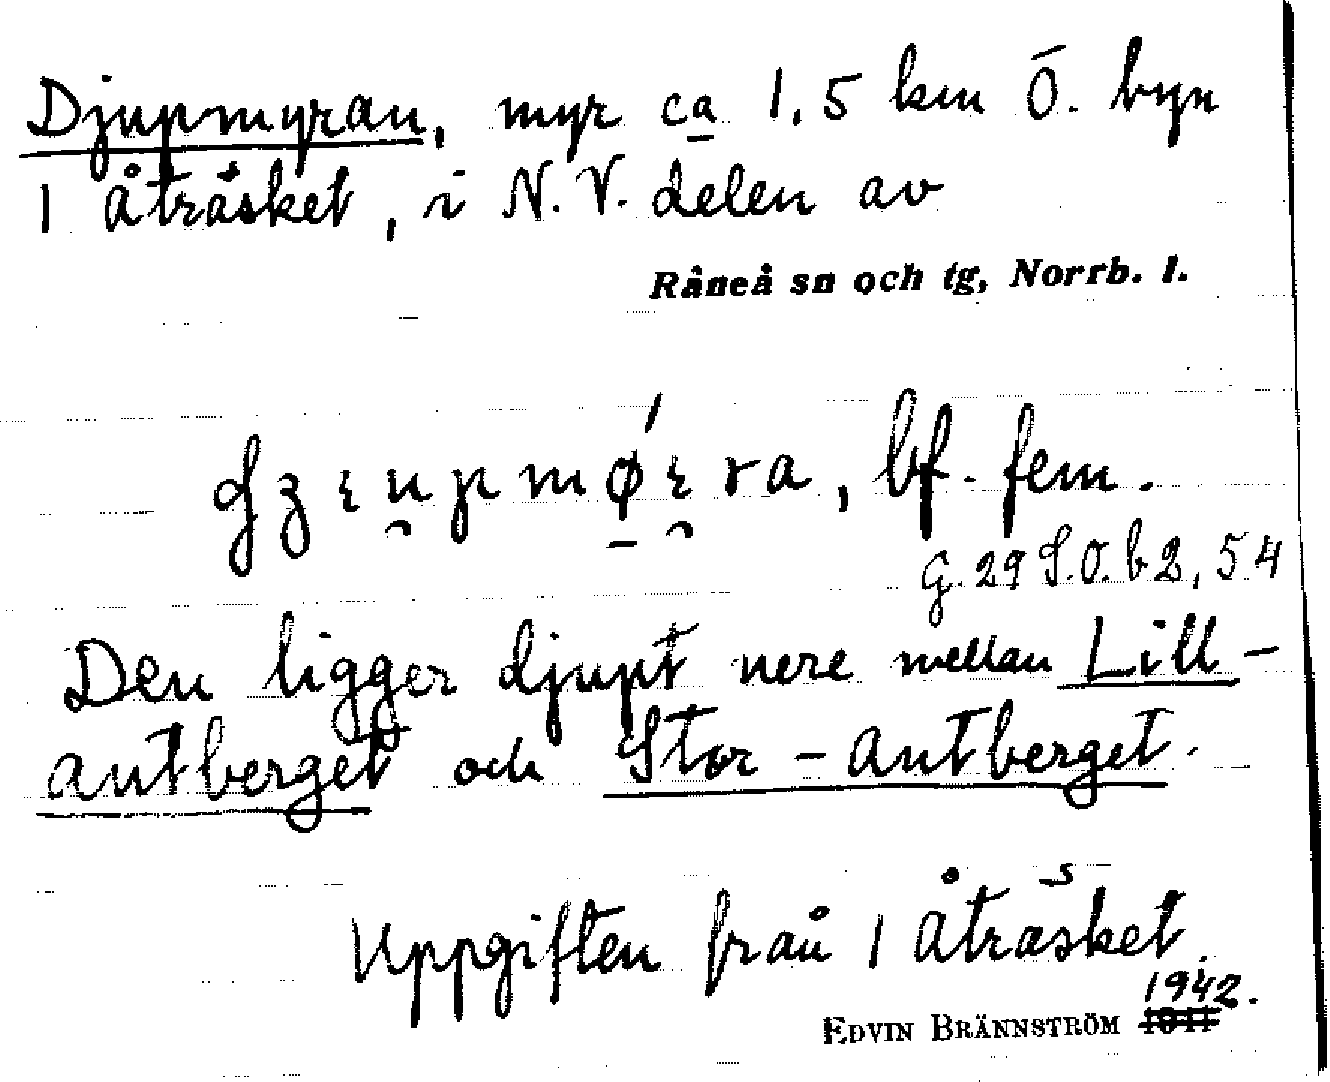 Djupmyran, myr ca 1,5 km Ö. byn
1 Åträsket, i N.V. delen av
Råneå sn och tg, Norrb. l.
bf. fem.
G. 29 S.O. b 2, 54
Den ligger djupt nere mellan Lill-
antberget och Stor-antberget.
Uppgiften från 1 Åträsket.
1942.
EDVIN BRÄNNSTRÖM 1941